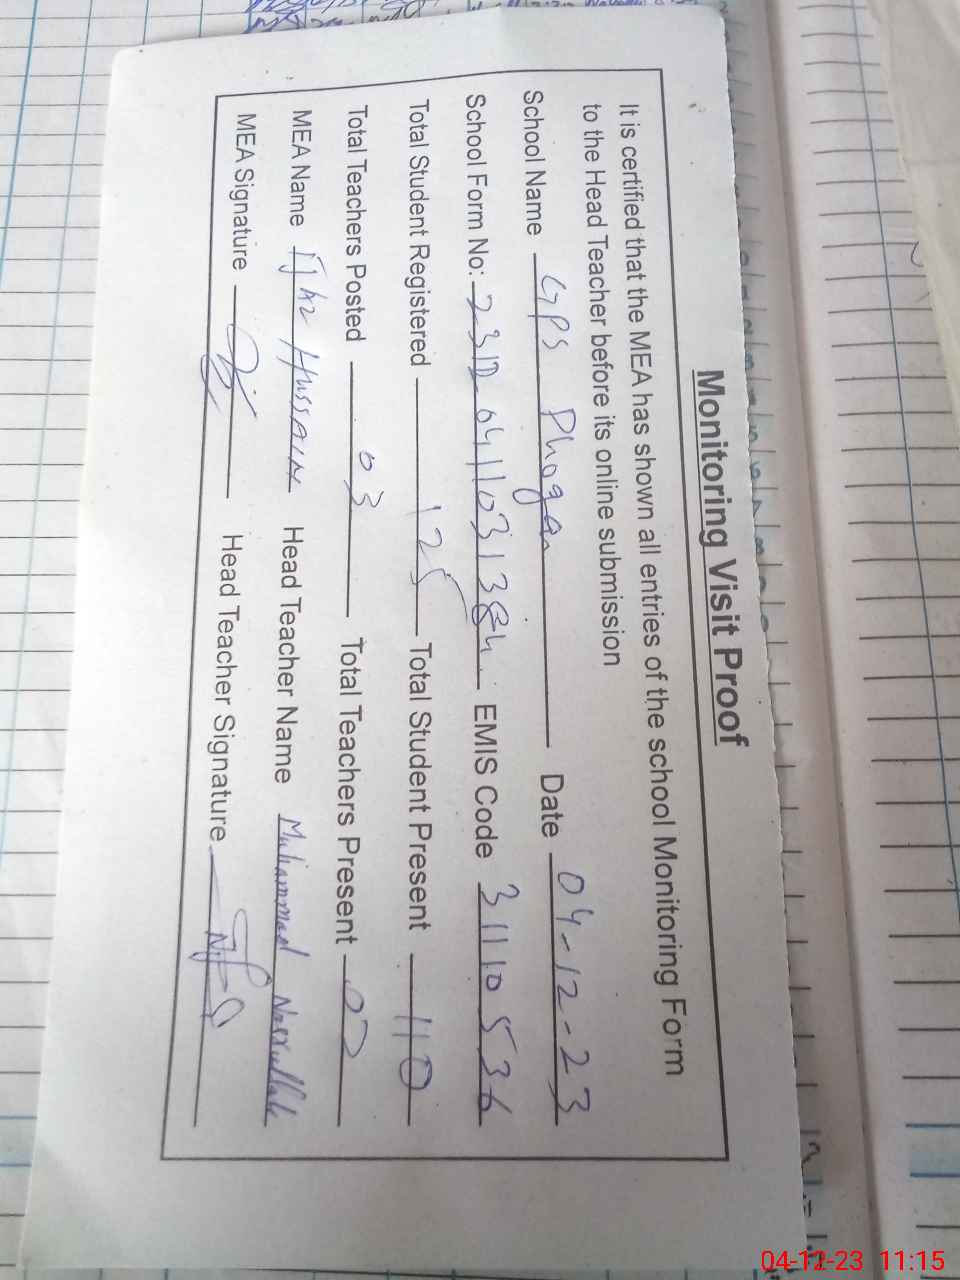 Monitoring Visit Proof
It is certified that the MEA has shown all entries of the school Monitoring Form
to the Head Teacher before its online submission
School Name GPS Phogan Date 04-12-23
School Form No: 23D 041103 EMIS Code 31110536
Total Student Registered 125 Total Student Present 110
Total Teachers Posted 03 Total Teachers Present
MEA Name Hussain Head Teacher Name Muhammad Nasrullah
MEA Signature Head Teacher Signature
04-12-23 11:15